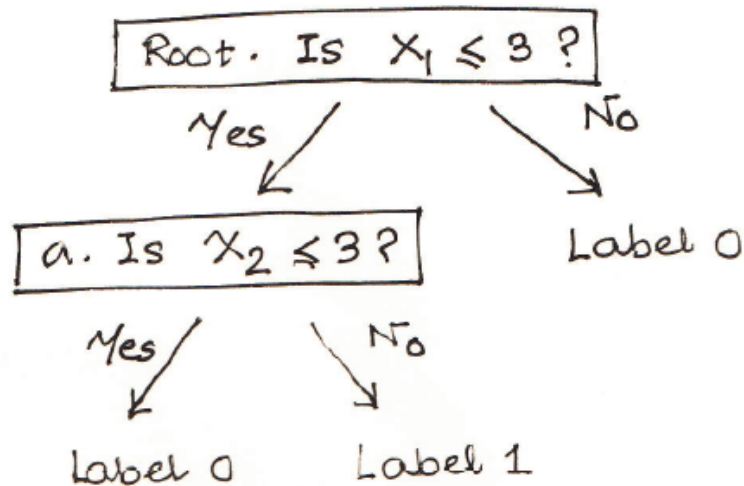 Root. Is X₁ ≤ 3 ?
Yes
No
a. Is X₂ ≤ 3 ?
Label 0
Yes
No
Label 0
Label 1